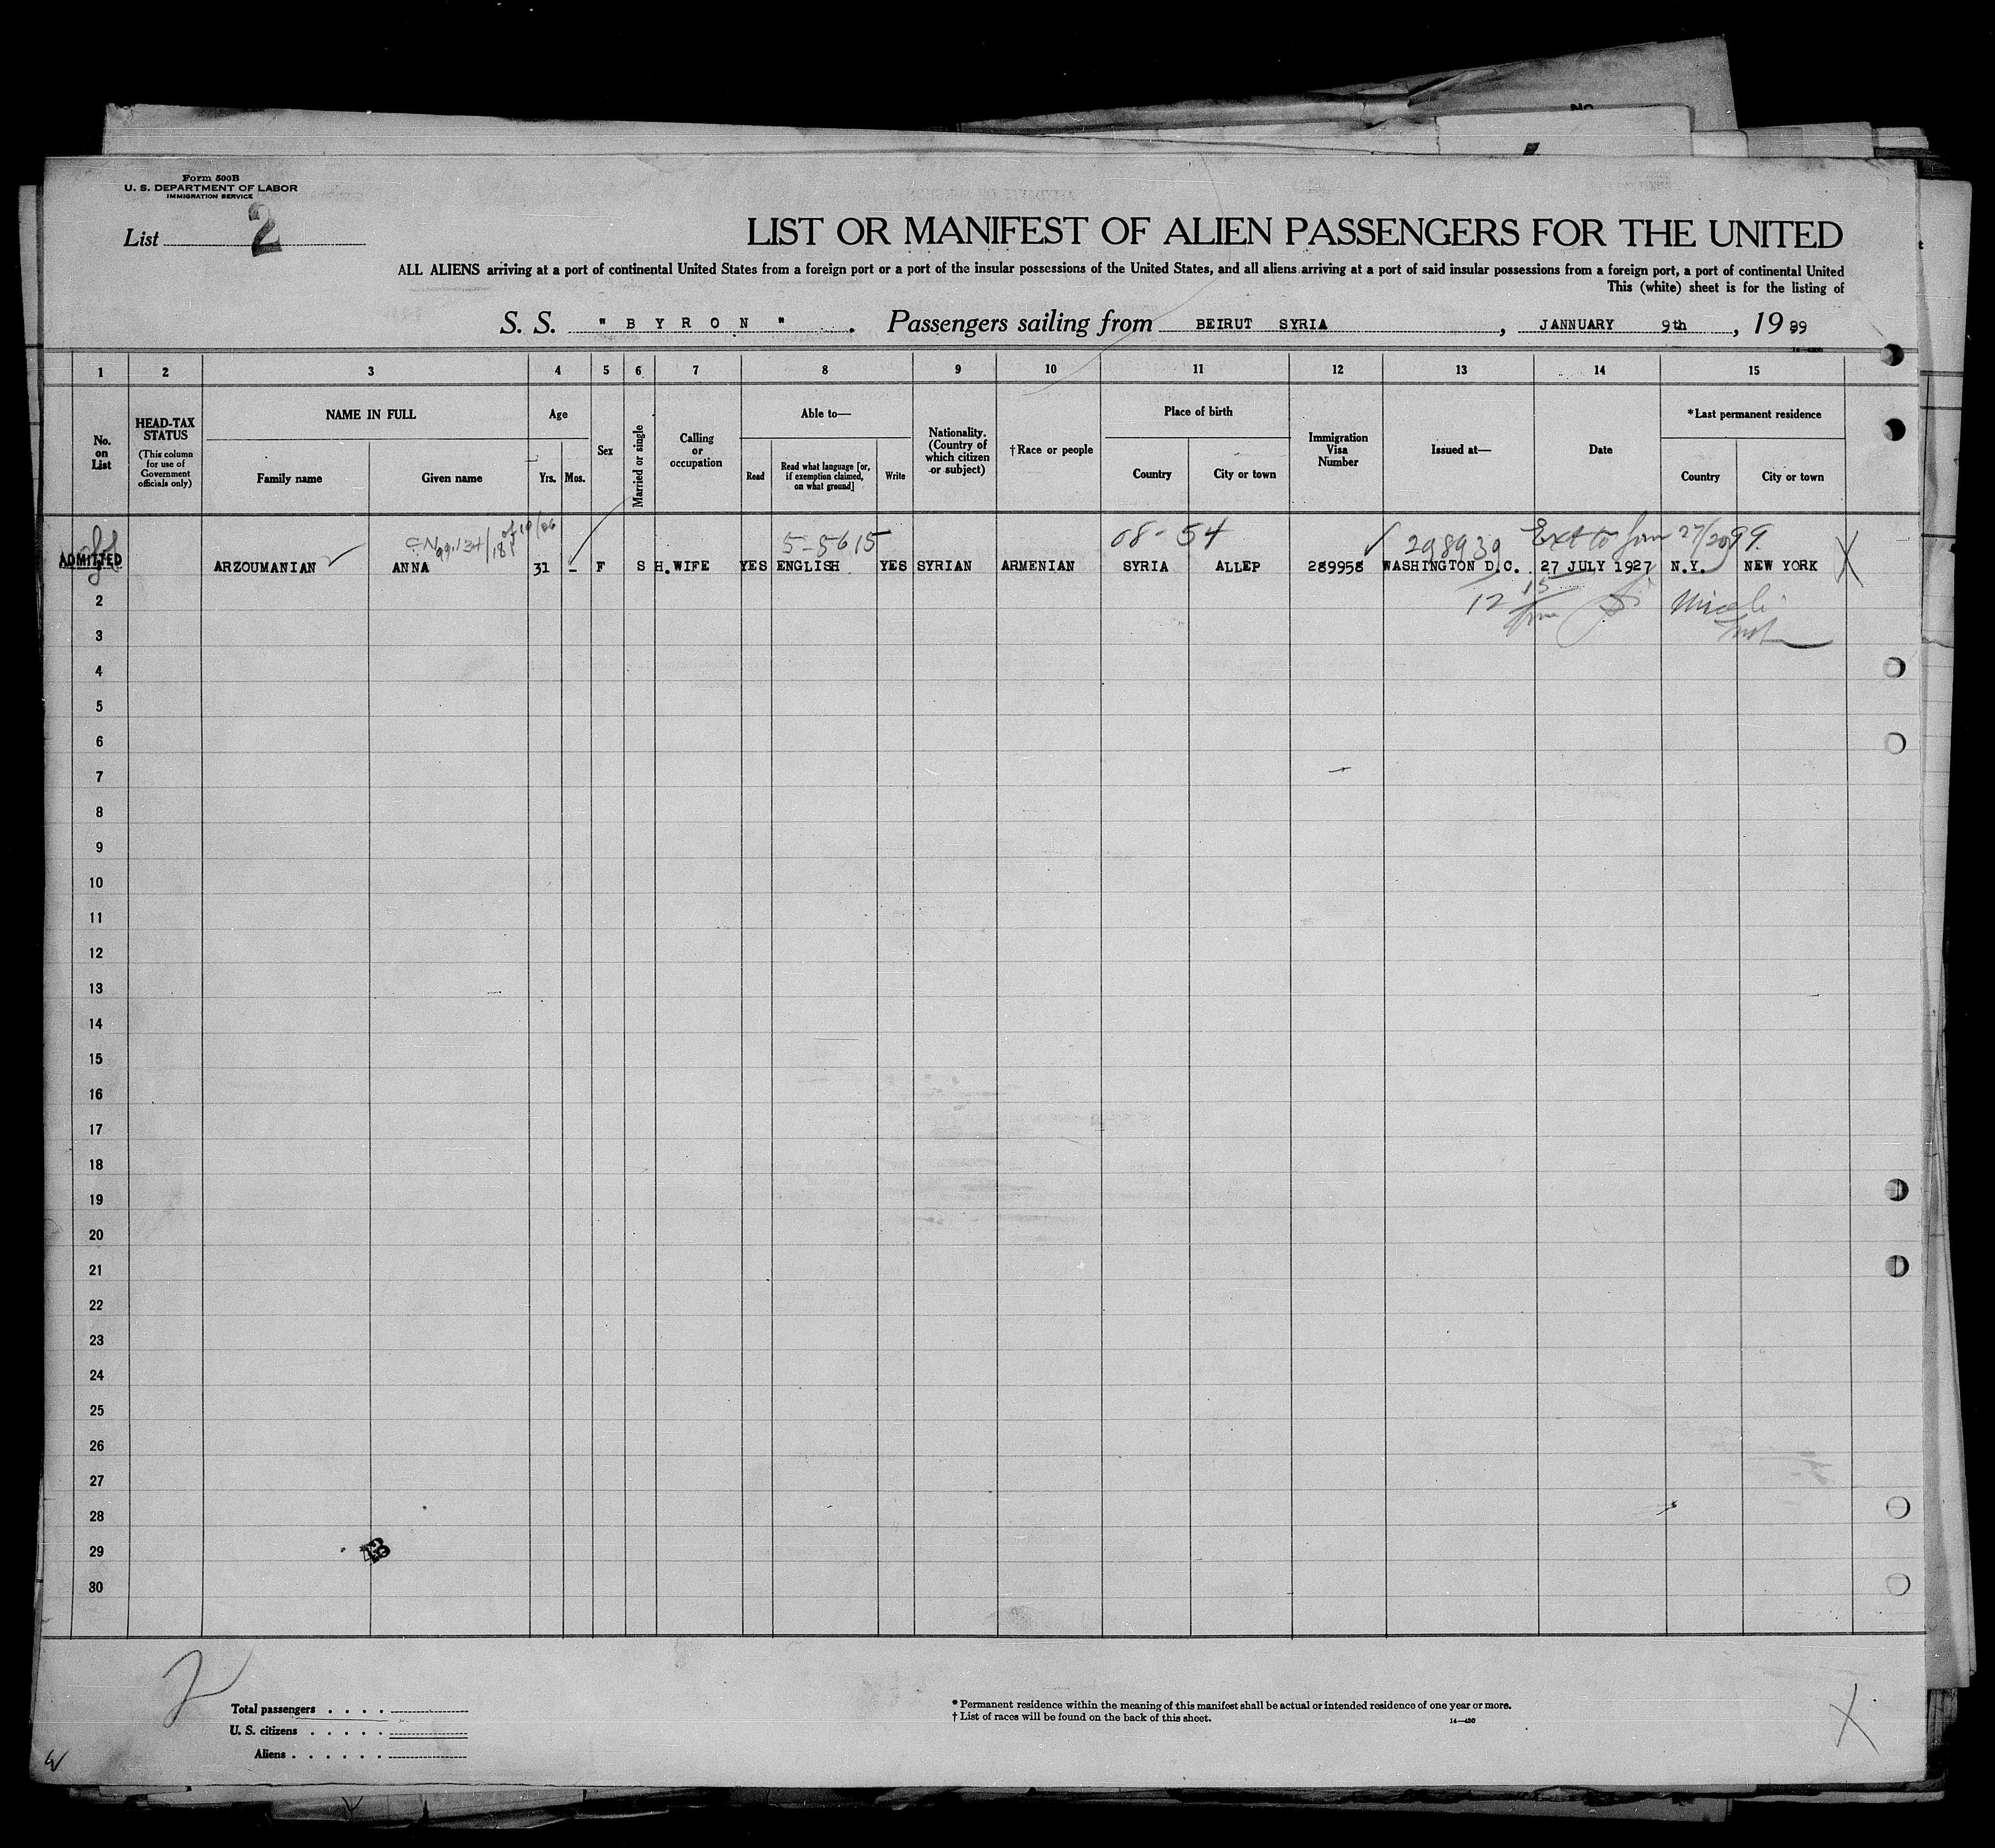 No
Form 500B
U. S. DEPARTMENT OF LABOR
IMMIGRATION SERVICE
List 2
LIST OR MANIFEST OF ALIEN PASSENGERS FOR THE UNITED
ALL ALIENS arriving at a port of continental United States from a foreign port or a port of the insular possessions of the United States, and all aliens arriving at a port of said insular possessions from a foreign port, a port of continental United
This (white) sheet is for the listing of
S. S. " B Y R O N " . Passengers sailing from BEIRUT SYRIA , JANNUARY 9th , 19
1 2 3 4 5 6 7 8 9 10 11 12 13 14 15
No. on List
HEAD-TAX STATUS
(This column for use of Government officials only)
NAME IN FULL
Family name Given name
Age
Yrs. Mos.
Sex
Married or single
Calling or occupation
Able to—
Read
Read what language [or, if exemption claimed, on what ground]
Write
Nationality. (Country of which citizen or subject)
†Race or people
Place of birth
Country City or town
Immigration Visa Number
Issued at—
Date
*Last permanent residence
Country City or town
5-5615 08-54 298939 Ext to Jan 27/
ADMITTED ARZOUMANIAN ANNA 31 - F S H.WIFE YES ENGLISH YES SYRIAN ARMENIAN SYRIA ALLEP 289958 WASHINGTON D.C. 27 JULY 1927 N.Y. NEW YORK
2
3
4
5
6
7
8
9
10
11
12
13
14
15
16
17
18
19
20
21
22
23
24
25
26
27
28
29
30
Total passengers . . . .
U. S. citizens . . . . .
Aliens . . . . . .
* Permanent residence within the meaning of this manifest shall be actual or intended residence of one year or more.
† List of races will be found on the back of this sheet.
14—430